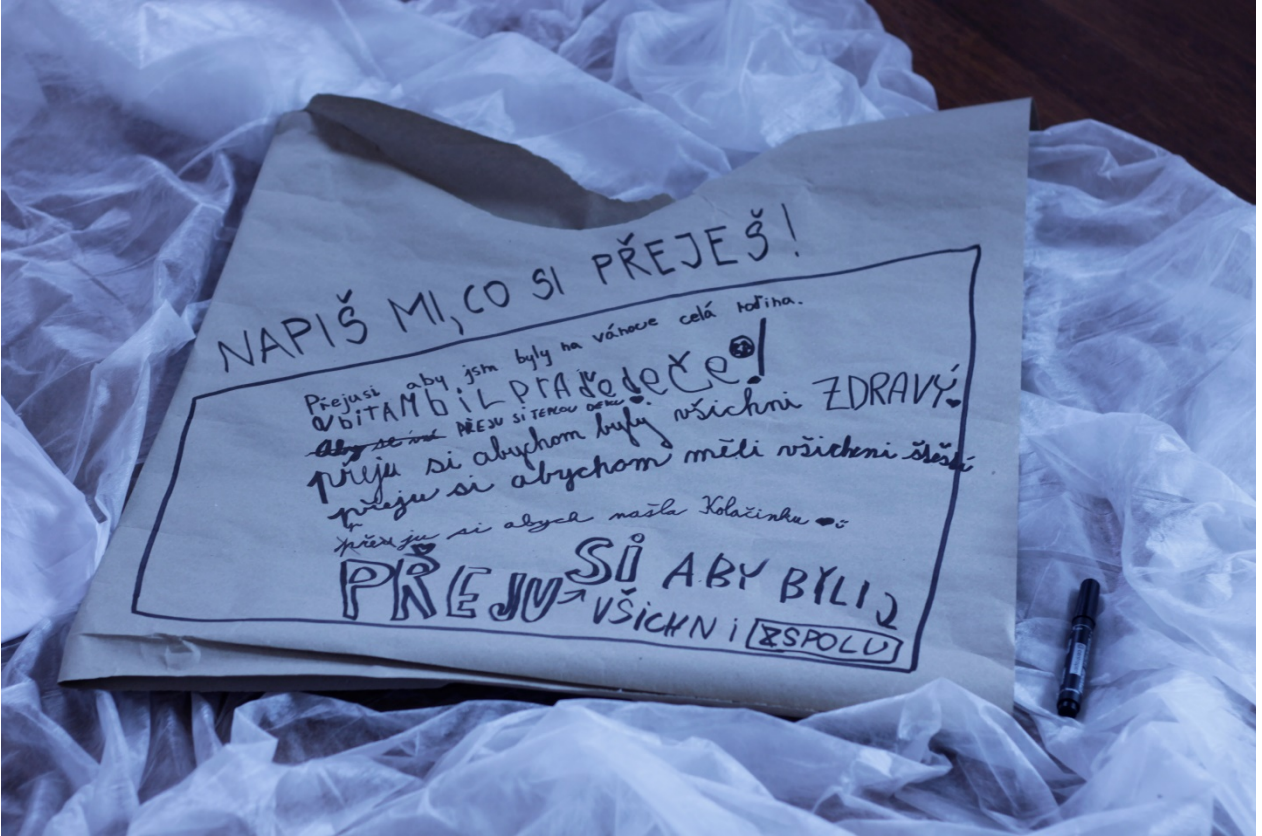 NAPIŠ MI, CO SI PŘEJEŠ!
Přejusi aby jsm byly na vánoce celá rodina.
AbiTAM biL PrAděděČe!
Aby PŘEJU SI TEPLOU DEKU
přeju si abychom byly všichni ZDRAVÝ.
přeju si abychom měli všichni štěstí
přeju si abych našla Kolačinku
PŘEJU SI ABY BYLI
VŠiCHNi ZSPOLU